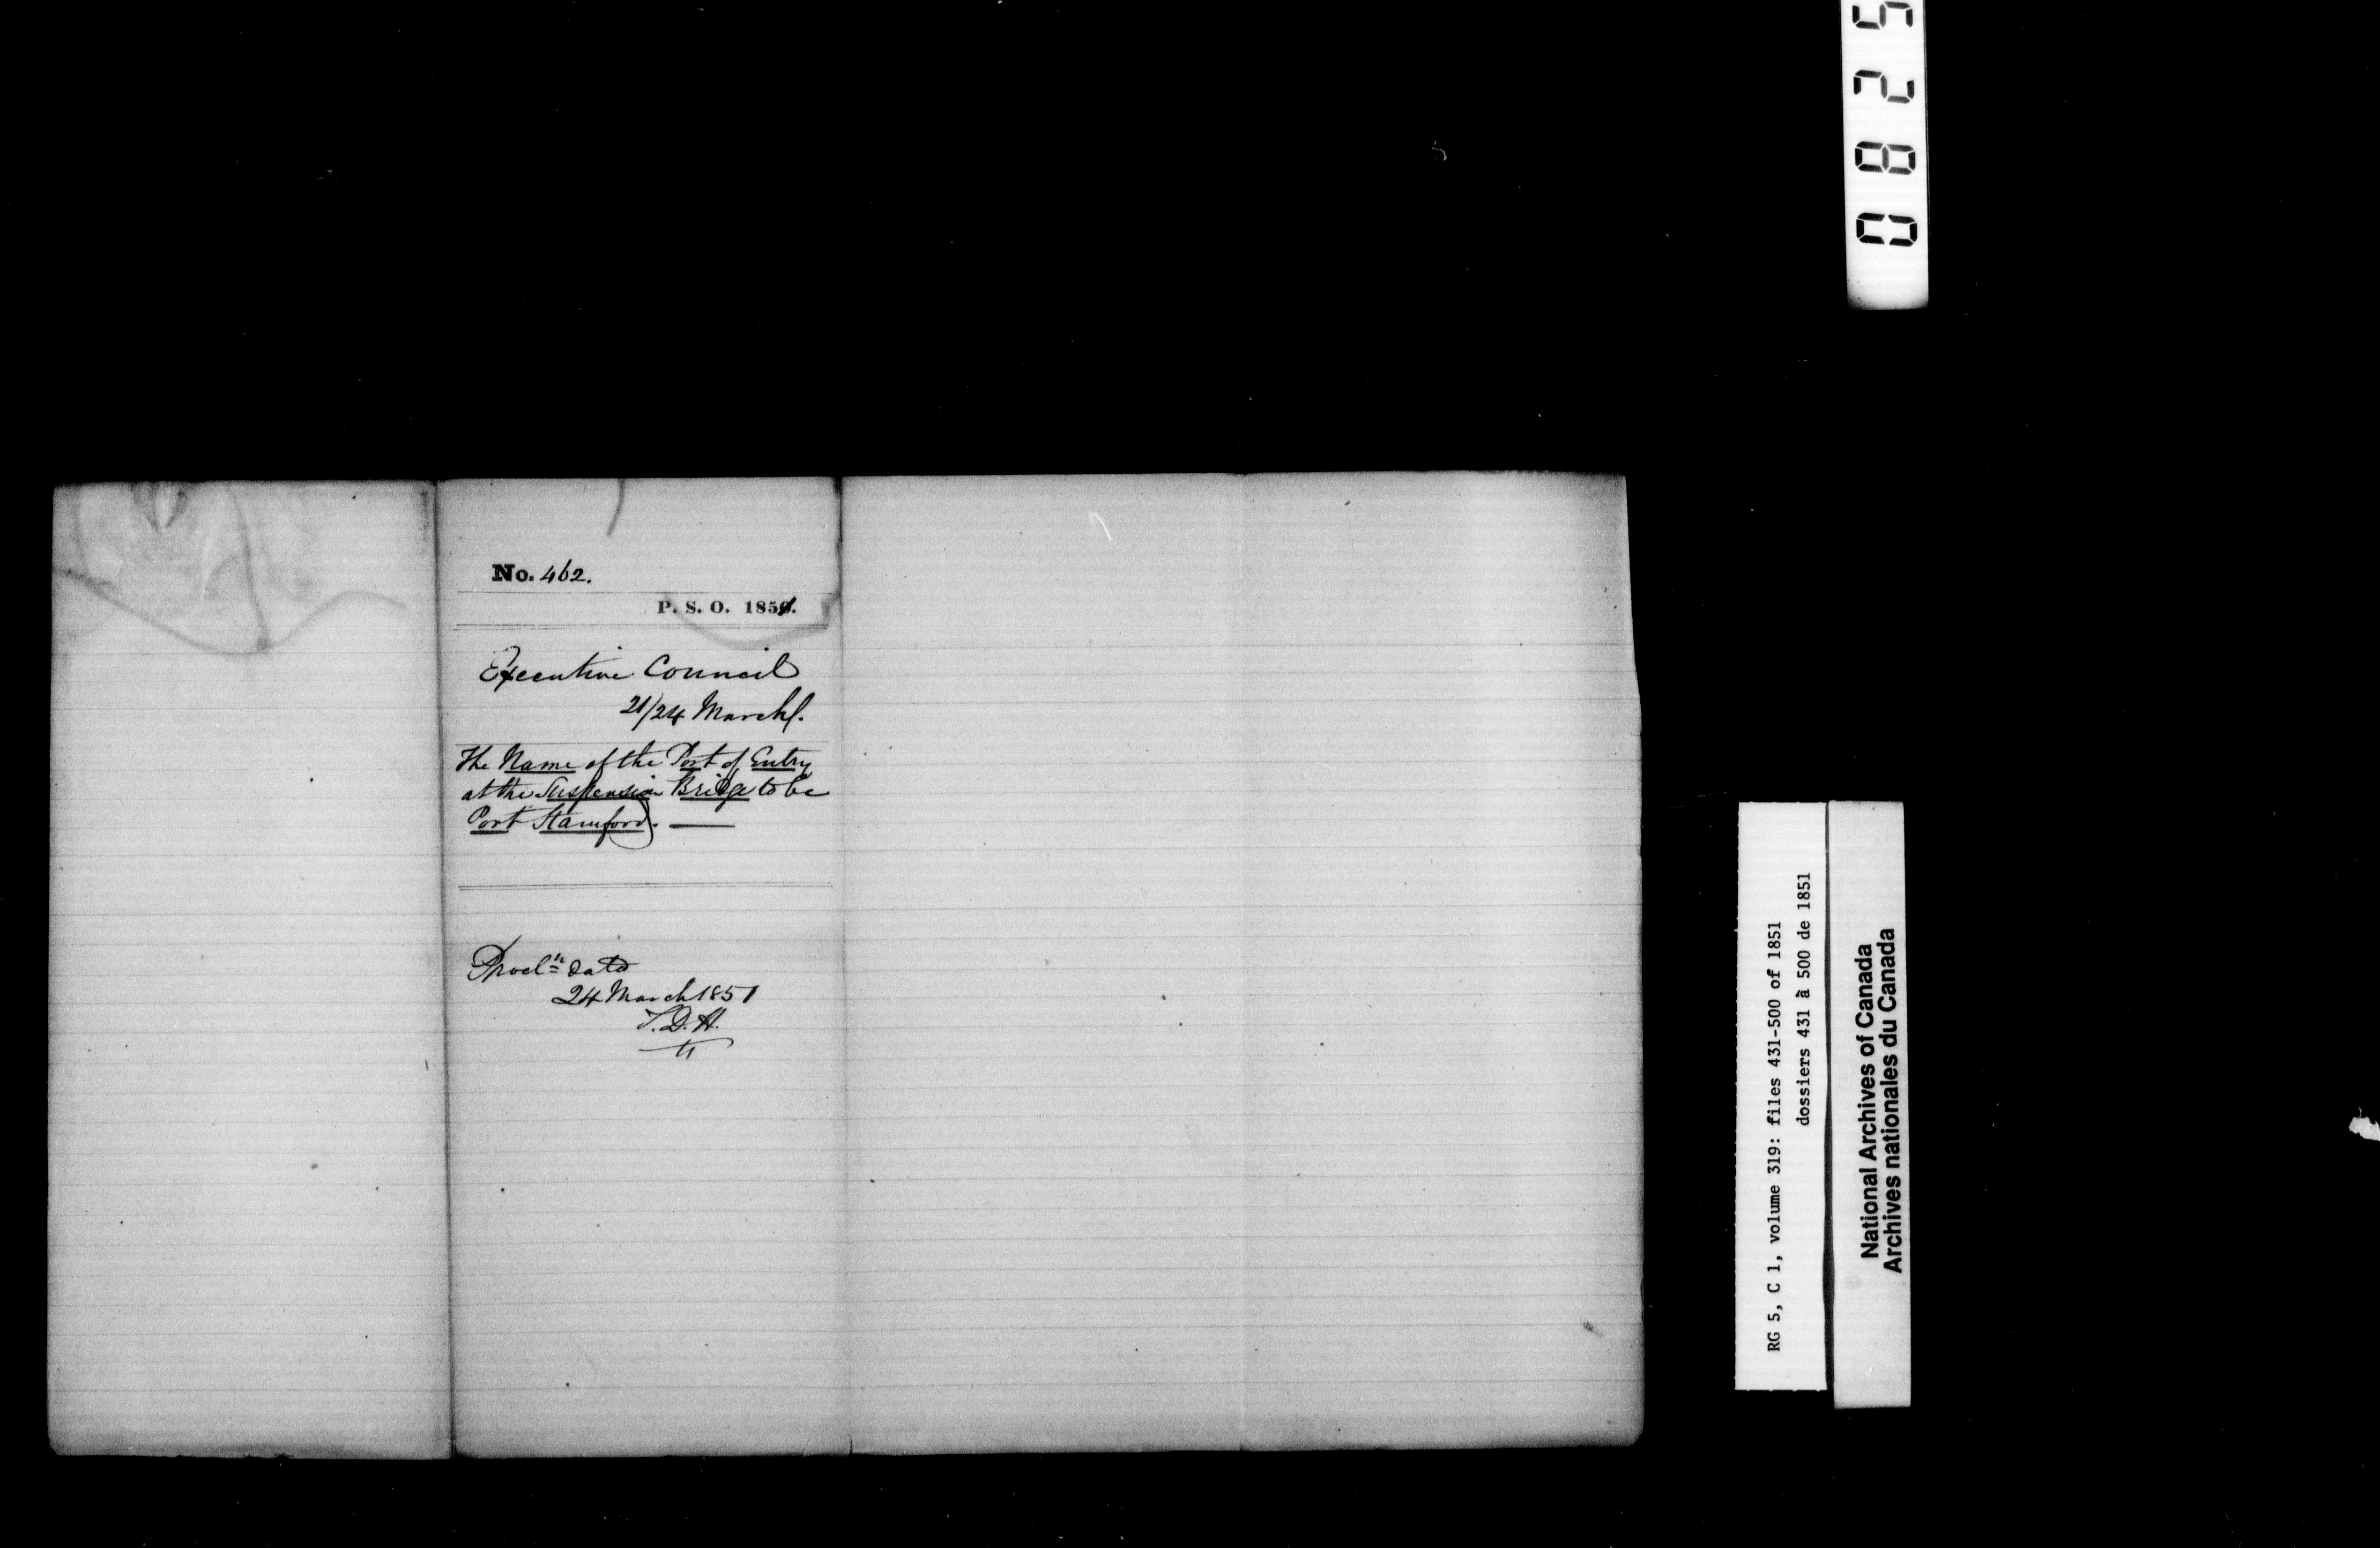 No. 462.
P. S. O. 1851.
Executive Council
21/24 March/.
The Name of the Port of Entry
at the Suspension Bridge to be
Port Stamford. —
Procl<sup>n</sup> dated
24 March 1851
T.D.H.
0825
RG 5, C 1, volume 319: files 431-500 of 1851
dossiers 431 à 500 de 1851
National Archives of Canada
Archives nationales du Canada